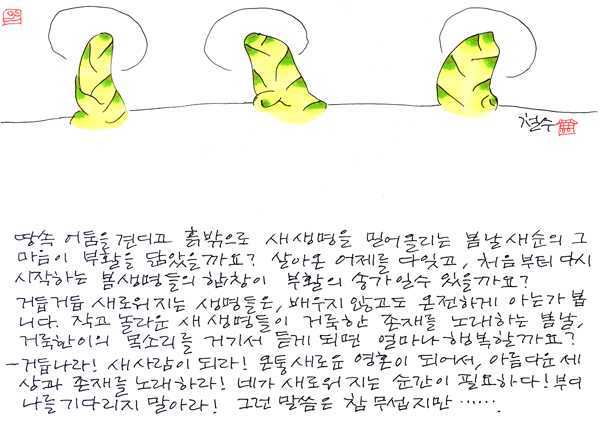 철수
땅속 어둠을 견디고 흙밖으로 새생명을 밀어올리는 봄날 새순의 그
마음이 부활을 닮았을까요? 살아온 어제를 다 잊고, 처음부터 다시
시작하는 봄생명들의 합창이 부활의 송가일수 있을까요?
거듭거듭 새로워지는 생명들은, 배우지 않고도 온전하게 아는가 봅
니다. 작고 놀라운 새 생명들이 거룩한 존재를 노래하는 봄날,
거룩한이의 목소리를 거기서 듣게 되면 얼마나 행복할까요?
- 거듭나라! 새사람이 되라! 온통 새로운 영혼이 되어서, 아름다운 세
상과 존재를 노래하라! 네가 새로워지는 순간이 필요하다! 부디
나를 기다리지 말아라! 그런 말씀은 참 무섭지만 ······.